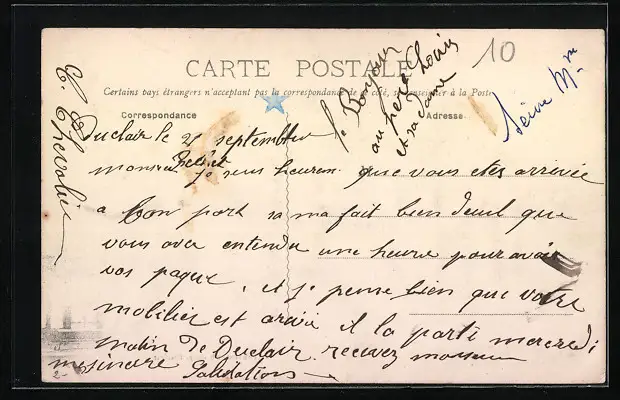 CARTE POSTALE
Certains pays étrangers n'acceptant pas la correspondance de ce côté, se renseigner à la Poste
Correspondance
Adresse
10
Seine Mme
Bonjour
au père Louis
et sa dame
Duclair le 21 septembre
monsieur je suis heureu que vous etes arrivée
a bon port sa ma fait bien deuil que
vous avez entendu une heure pour avoir
vos paque, et je pense bien que votre
mobilier est arrivé il la parti mercredi
matin de Duclair. recevez monsieur
mes sincere Salutations
C. Chevalier